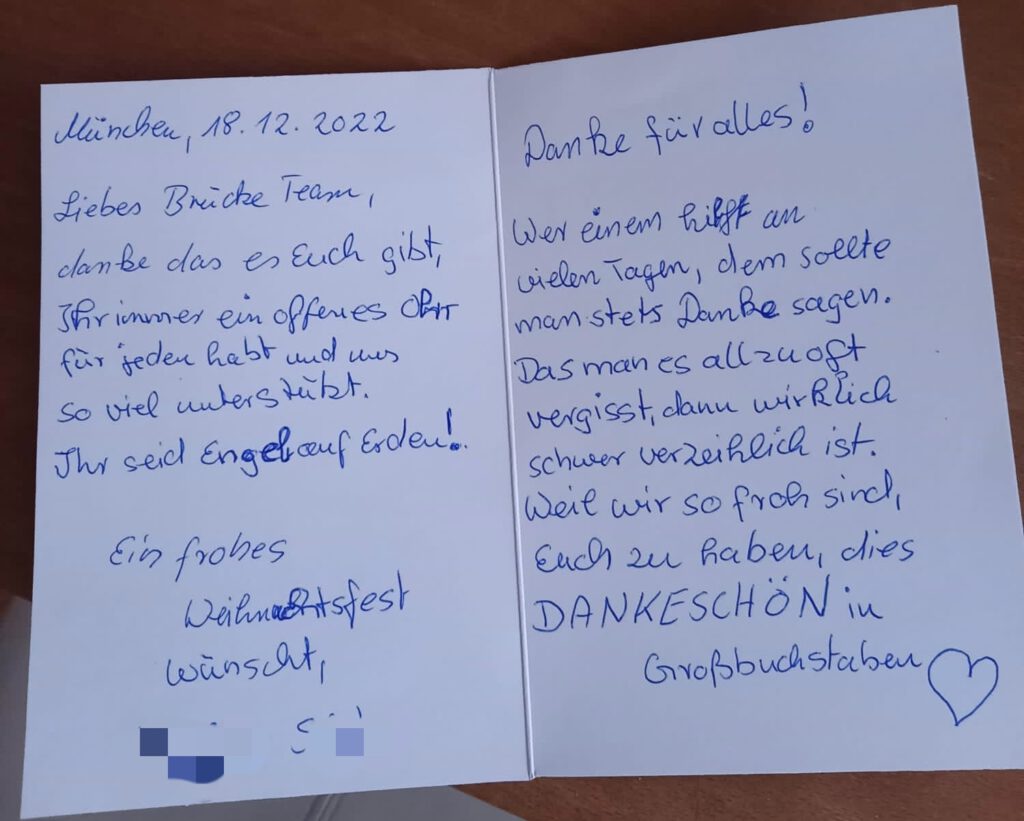 München, 18.12.2022
Liebes Brücke Team,
danke das es Euch gibt,
Ihr immer ein offenes Ohr
für jeden habt und uns
so viel unterstützt.
Ihr seid Engel auf Erden!
Ein frohes
Weihnachtsfest
wünscht,
Danke für alles!
Wer einem hilft an
vielen Tagen, dem sollte
man stets Danke sagen.
Das man es allzu oft
vergisst, dann wirklich
schwer verzeihlich ist.
Weil wir so froh sind,
Euch zu haben, dies
DANKESCHÖN in
Großbuchstaben